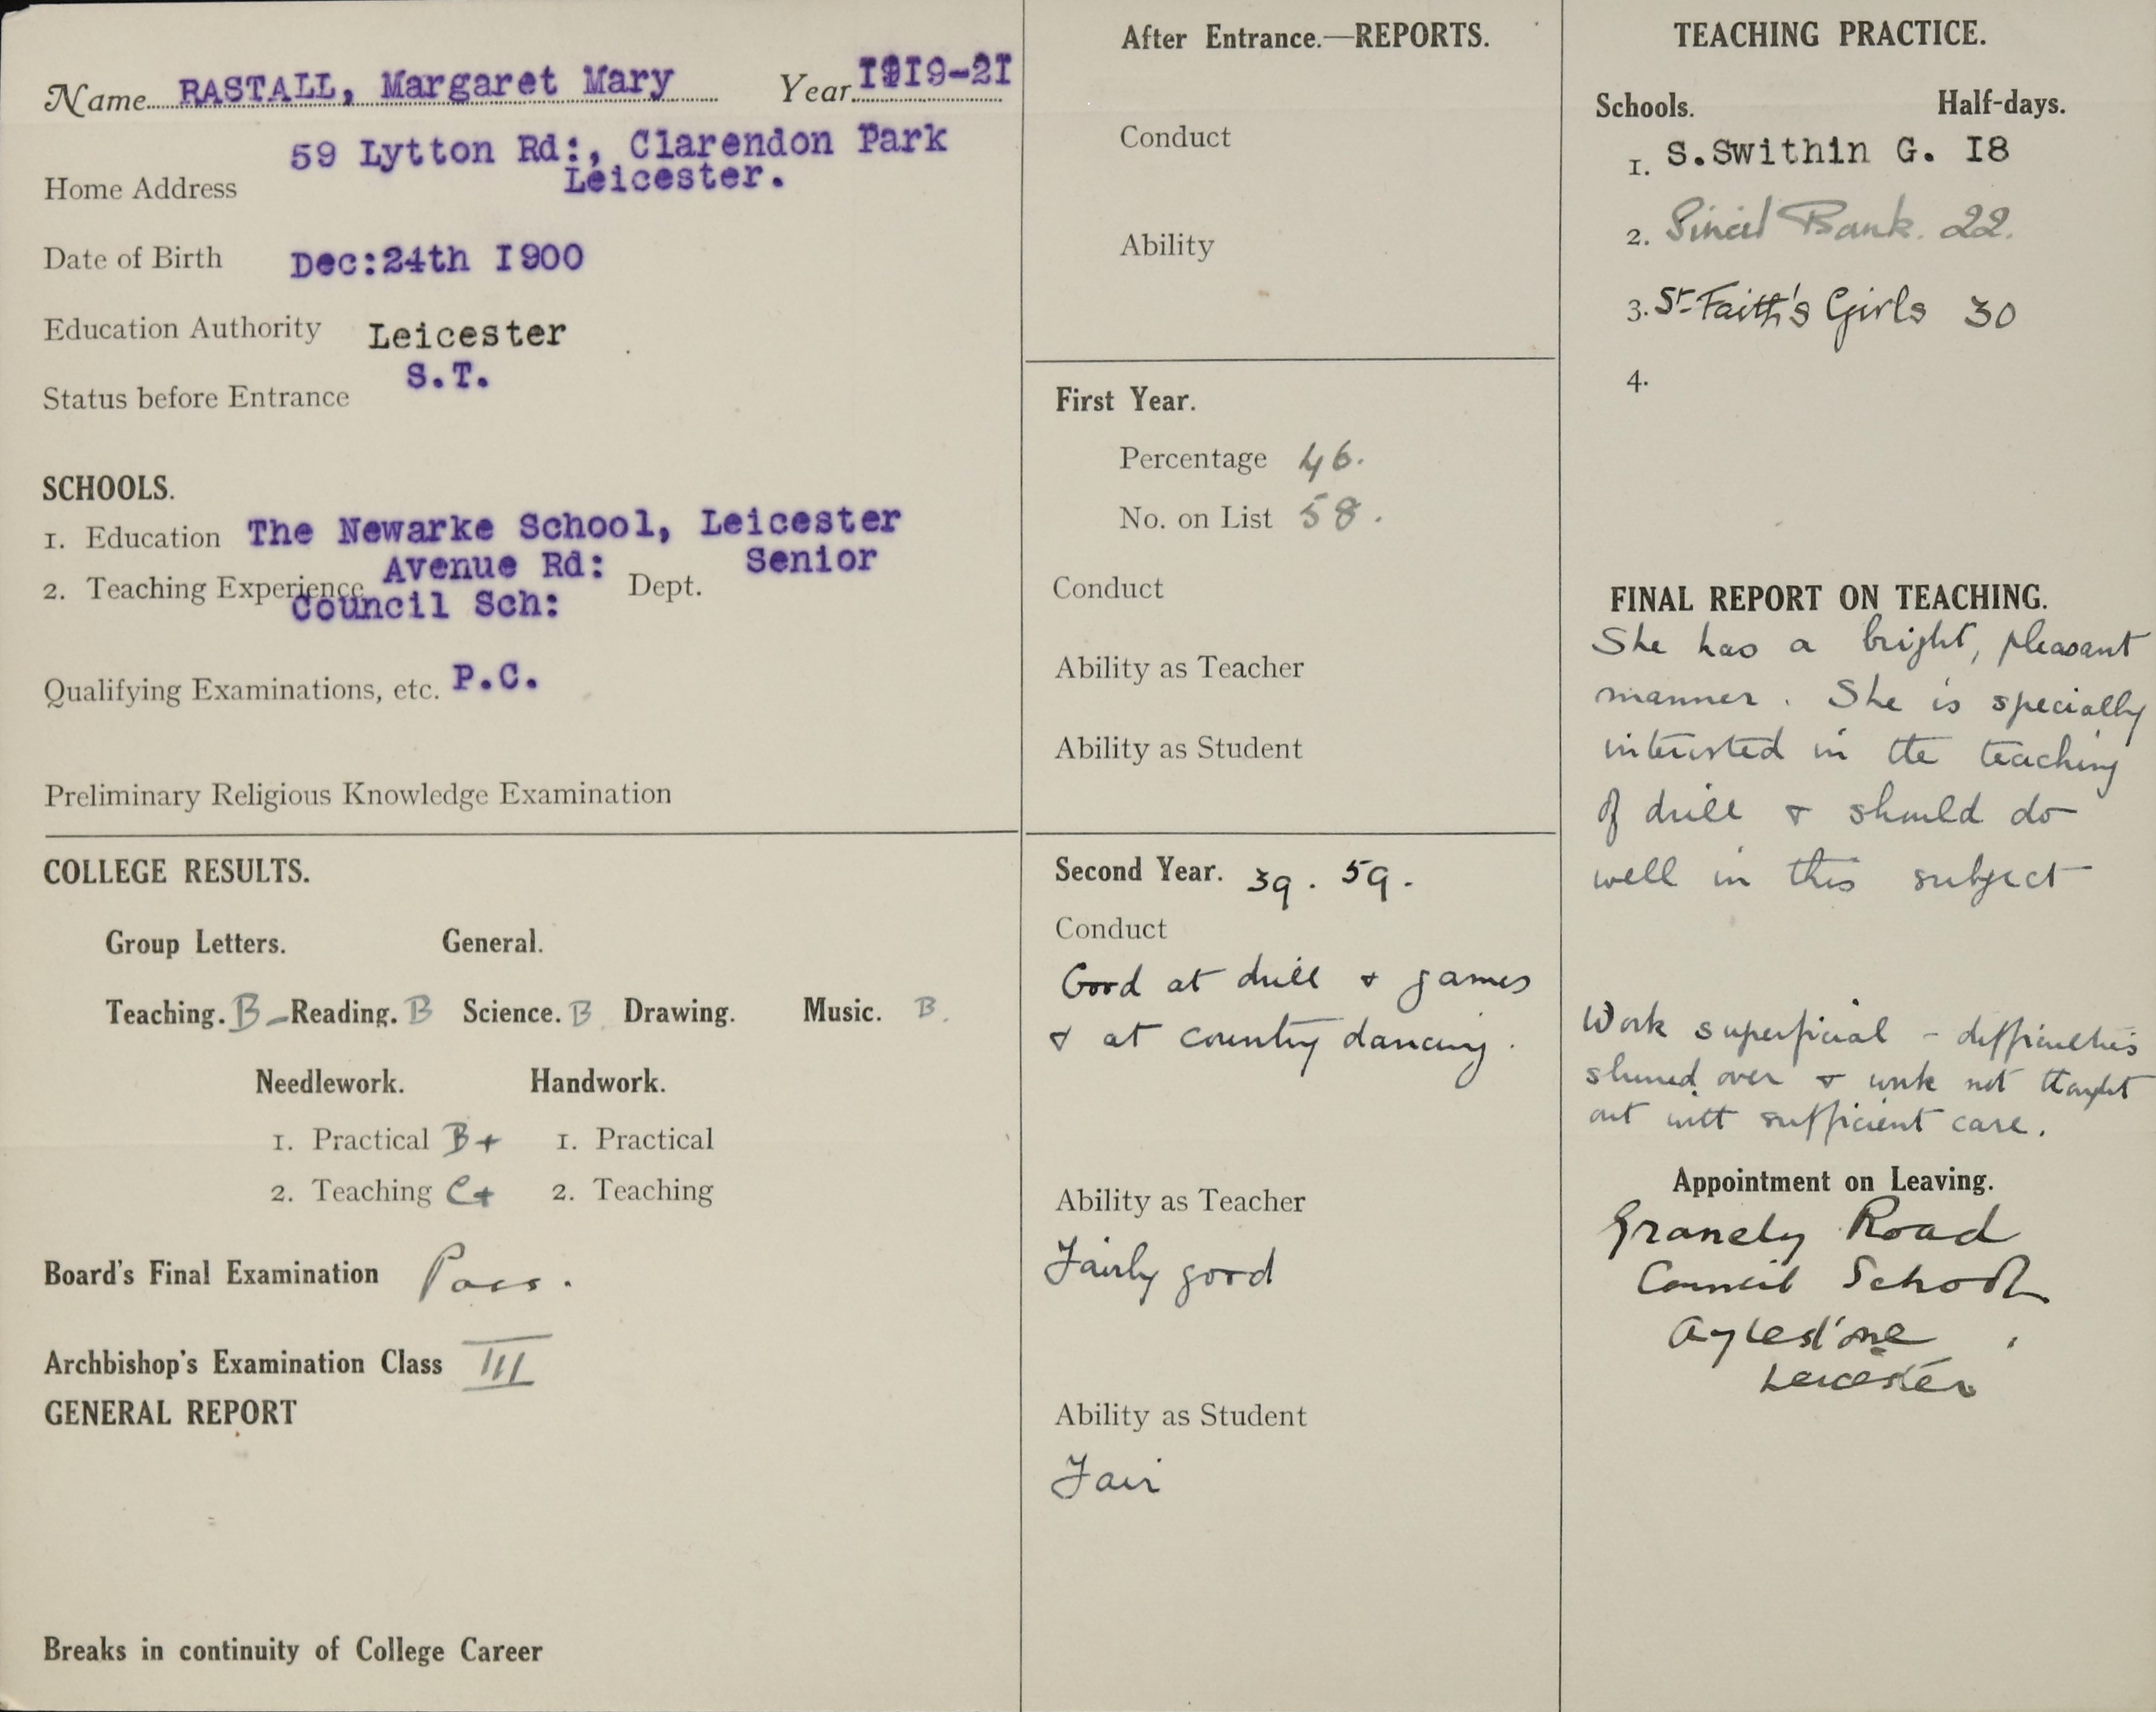 Name RASTALL, Margaret Mary Year 1919-21
59 Lytton Rd:, Clarendon Park
Home Address Leicester.
Date of Birth Dec:24th 1900
Education Authority Leicester
Status before Entrance S.T.
SCHOOLS.
1. Education The Newarke School, Leicester
2. Teaching Experience Avenue Rd: Dept. Senior
Council Sch:
Qualifying Examinations, etc. P.C.
Preliminary Religious Knowledge Examination
COLLEGE RESULTS.
Group Letters. General.
Teaching. B- Reading. B Science. B Drawing. Music. B.
Needlework. Handwork.
1. Practical B+ 1. Practical
2. Teaching C+ 2. Teaching
Board's Final Examination Pass.
Archbishop's Examination Class III
GENERAL REPORT
Breaks in continuity of College Career
After Entrance.—REPORTS.
Conduct
Ability
First Year.
Percentage 46.
No. on List 58.
Conduct
Ability as Teacher
Ability as Student
Second Year. 39. 59.
Conduct
Good at drill & games
& at country dancing.
Ability as Teacher
Fairly good
Ability as Student
Fair
TEACHING PRACTICE.
Schools. Half-days.
1. S.Swithin G. 18
2. Sincil Bank. 22.
3. St Faith's Girls 30
4.
FINAL REPORT ON TEACHING.
She has a bright, pleasant
manner. She is specially
interested in the teaching
of drill & should do
well in this subject
Work superficial - difficulties
slurred over & work not thought
out with sufficient care.
Appointment on Leaving.
Road
Council School
Aylestone,
Leicester